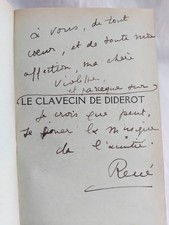 à vous, de tout
cœur, et de toute mon
affection, ma chère
Violette,
et parce que sur
LE CLAVECIN DE DIDEROT
je crois que peut
se jouer la musique
de l'amitié.
René